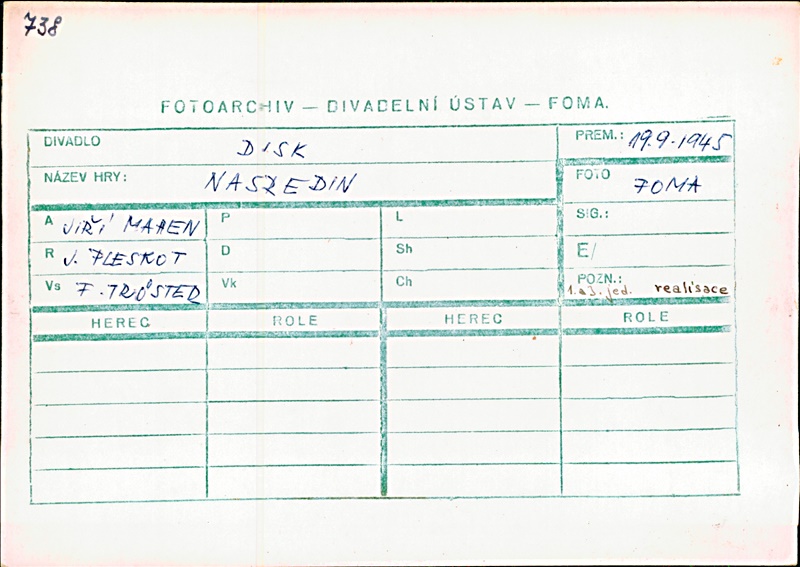 738
FOTOARCHIV — DIVADELNÍ ÚSTAV — FOMA.
DIVADLO DISK PREM.: 19.9.1945
NÁZEV HRY: NASREDIN FOTO FOMA
A JIŘÍ MAHEN P L SIG.:
R J. PLESKOT D Sh E/
Vs F. TRÖSTER Vk Ch POZN.: 1. a 3. jed. realisace
HEREC ROLE HEREC ROLE